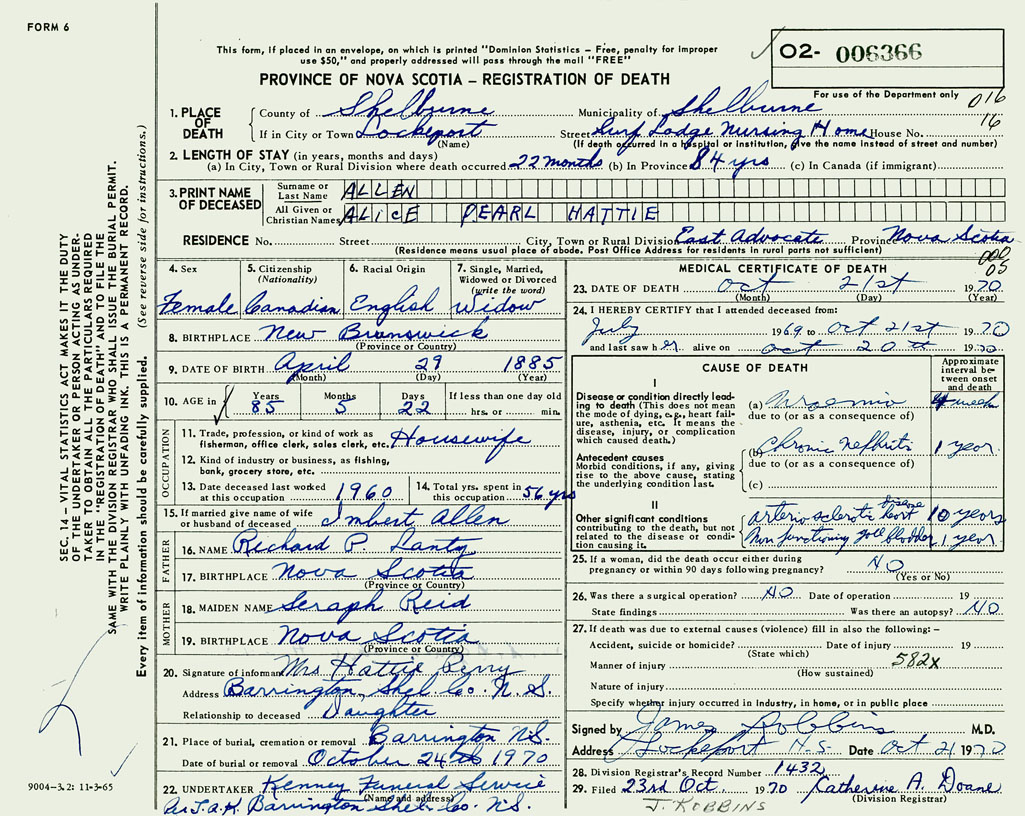 FORM 6
This form, if placed in an envelope, on which is printed "Dominion Statistics – Free, penalty for improper
use $50," and properly addressed will pass through the mail "FREE"
PROVINCE OF NOVA SCOTIA – REGISTRATION OF DEATH
O2- 006366
For use of the Department only
016
16
1. PLACE OF DEATH
County of Shelburne Municipality of Shelburne
If in City or Town Lockeport Street Surf Lodge Nursing Home House No.
(Name) (If death occurred in a hospital or institution, give the name instead of street and number)
2. LENGTH OF STAY (in years, months and days)
(a) In City, Town or Rural Division where death occurred 22 months (b) In Province 84 yrs (c) In Canada (if immigrant)
3. PRINT NAME OF DECEASED
Surname or Last Name ALLEN
All Given or Christian Names ALICE PEARL HATTIE
RESIDENCE No. Street City, Town or Rural Division East Advocate Province Nova Scotia
(Residence means usual place of abode. Post Office Address for residents in rural parts not sufficient)
000
05
4. Sex Female
5. Citizenship (Nationality) Canadian
6. Racial Origin English
7. Single, Married, Widowed or Divorced (write the word) Widow
8. BIRTHPLACE New Brunswick
(Province or Country)
9. DATE OF BIRTH April 29 1885
(Month) (Day) (Year)
10. AGE in Years 85 Months 5 Days 22 If less than one day old hrs. or min.
OCCUPATION
11. Trade, profession, or kind of work as
fisherman, office clerk, sales clerk, etc. Housewife
12. Kind of industry or business, as fishing,
bank, grocery store, etc.
13. Date deceased last worked
at this occupation 1960
14. Total yrs. spent in
this occupation 56 yrs
15. If married give name of wife
or husband of deceased Imbert Allen
FATHER
16. NAME Richard P. Lanty
17. BIRTHPLACE Nova Scotia
(Province or Country)
MOTHER
18. MAIDEN NAME Seraph Reid
19. BIRTHPLACE Nova Scotia
(Province or Country)
20. Signature of informant Mrs Hattie Perry
Address Barrington, Shel. Co. N.S.
Relationship to deceased Daughter
21. Place of burial, cremation or removal Barrington N.S.
Date of burial or removal October 24th 1970
22. UNDERTAKER Kenney Funeral Service
(Name and address)
Barrington Shel. Co. N.S.
MEDICAL CERTIFICATE OF DEATH
23. DATE OF DEATH Oct 21st 1970
(Month) (Day) (Year)
24. I HEREBY CERTIFY that I attended deceased from:
July 1969 to Oct 21st 1970
and last saw her alive on Oct 20th 1970
CAUSE OF DEATH
Approximate interval between onset and death
I
Disease or condition directly leading to death (This does not
mean the mode of dying, e.g., heart failure, asthenia, etc. It means the
disease, injury, or complication
which caused death.)
(a) Uraemia week
due to (or as a consequence of)
Antecedent causes
Morbid conditions, if any, giving
rise to the above cause, stating
the underlying condition last.
(b) Chronic Nephritis 1 year.
due to (or as a consequence of)
(c)
II
Other significant conditions
contributing to the death, but not
related to the disease or condition causing it.
arteriosclerotic heart disease 10 years
Non functioning gall bladder 1 year.
25. If a woman, did the death occur either during
pregnancy or within 90 days following pregnancy? NO
(Yes or No)
26. Was there a surgical operation? NO Date of operation 19
State findings Was there an autopsy? NO
27. If death was due to external causes (violence) fill in also the following: –
Accident, suicide or homicide? Date of injury 19
(State which)
582X
Manner of injury
(How sustained)
Nature of injury
Specify whether injury occurred in industry, in home, or in public place
Signed by James Robbins M.D.
Address Lockeport N.S. Date Oct 21 1970
28. Division Registrar's Record Number 1432
29. Filed 23rd Oct. 1970 Catherine A. Doane
(Division Registrar)
J. ROBBINS
SEC. 14 – VITAL STATISTICS ACT MAKES IT THE DUTY
OF THE UNDERTAKER OR PERSON ACTING AS UNDERTAKER TO OBTAIN ALL THE PARTICULARS REQUIRED
IN THE "REGISTRATION OF DEATH" AND TO FILE THE
SAME WITH THE DIVISION REGISTRAR WHO SHALL ISSUE THE BURIAL PERMIT.
WRITE PLAINLY WITH UNFADING INK. THIS IS A PERMANENT RECORD.
Every item of information should be carefully supplied. (See reverse side for instructions.)
9004–3.2: 11-3-65